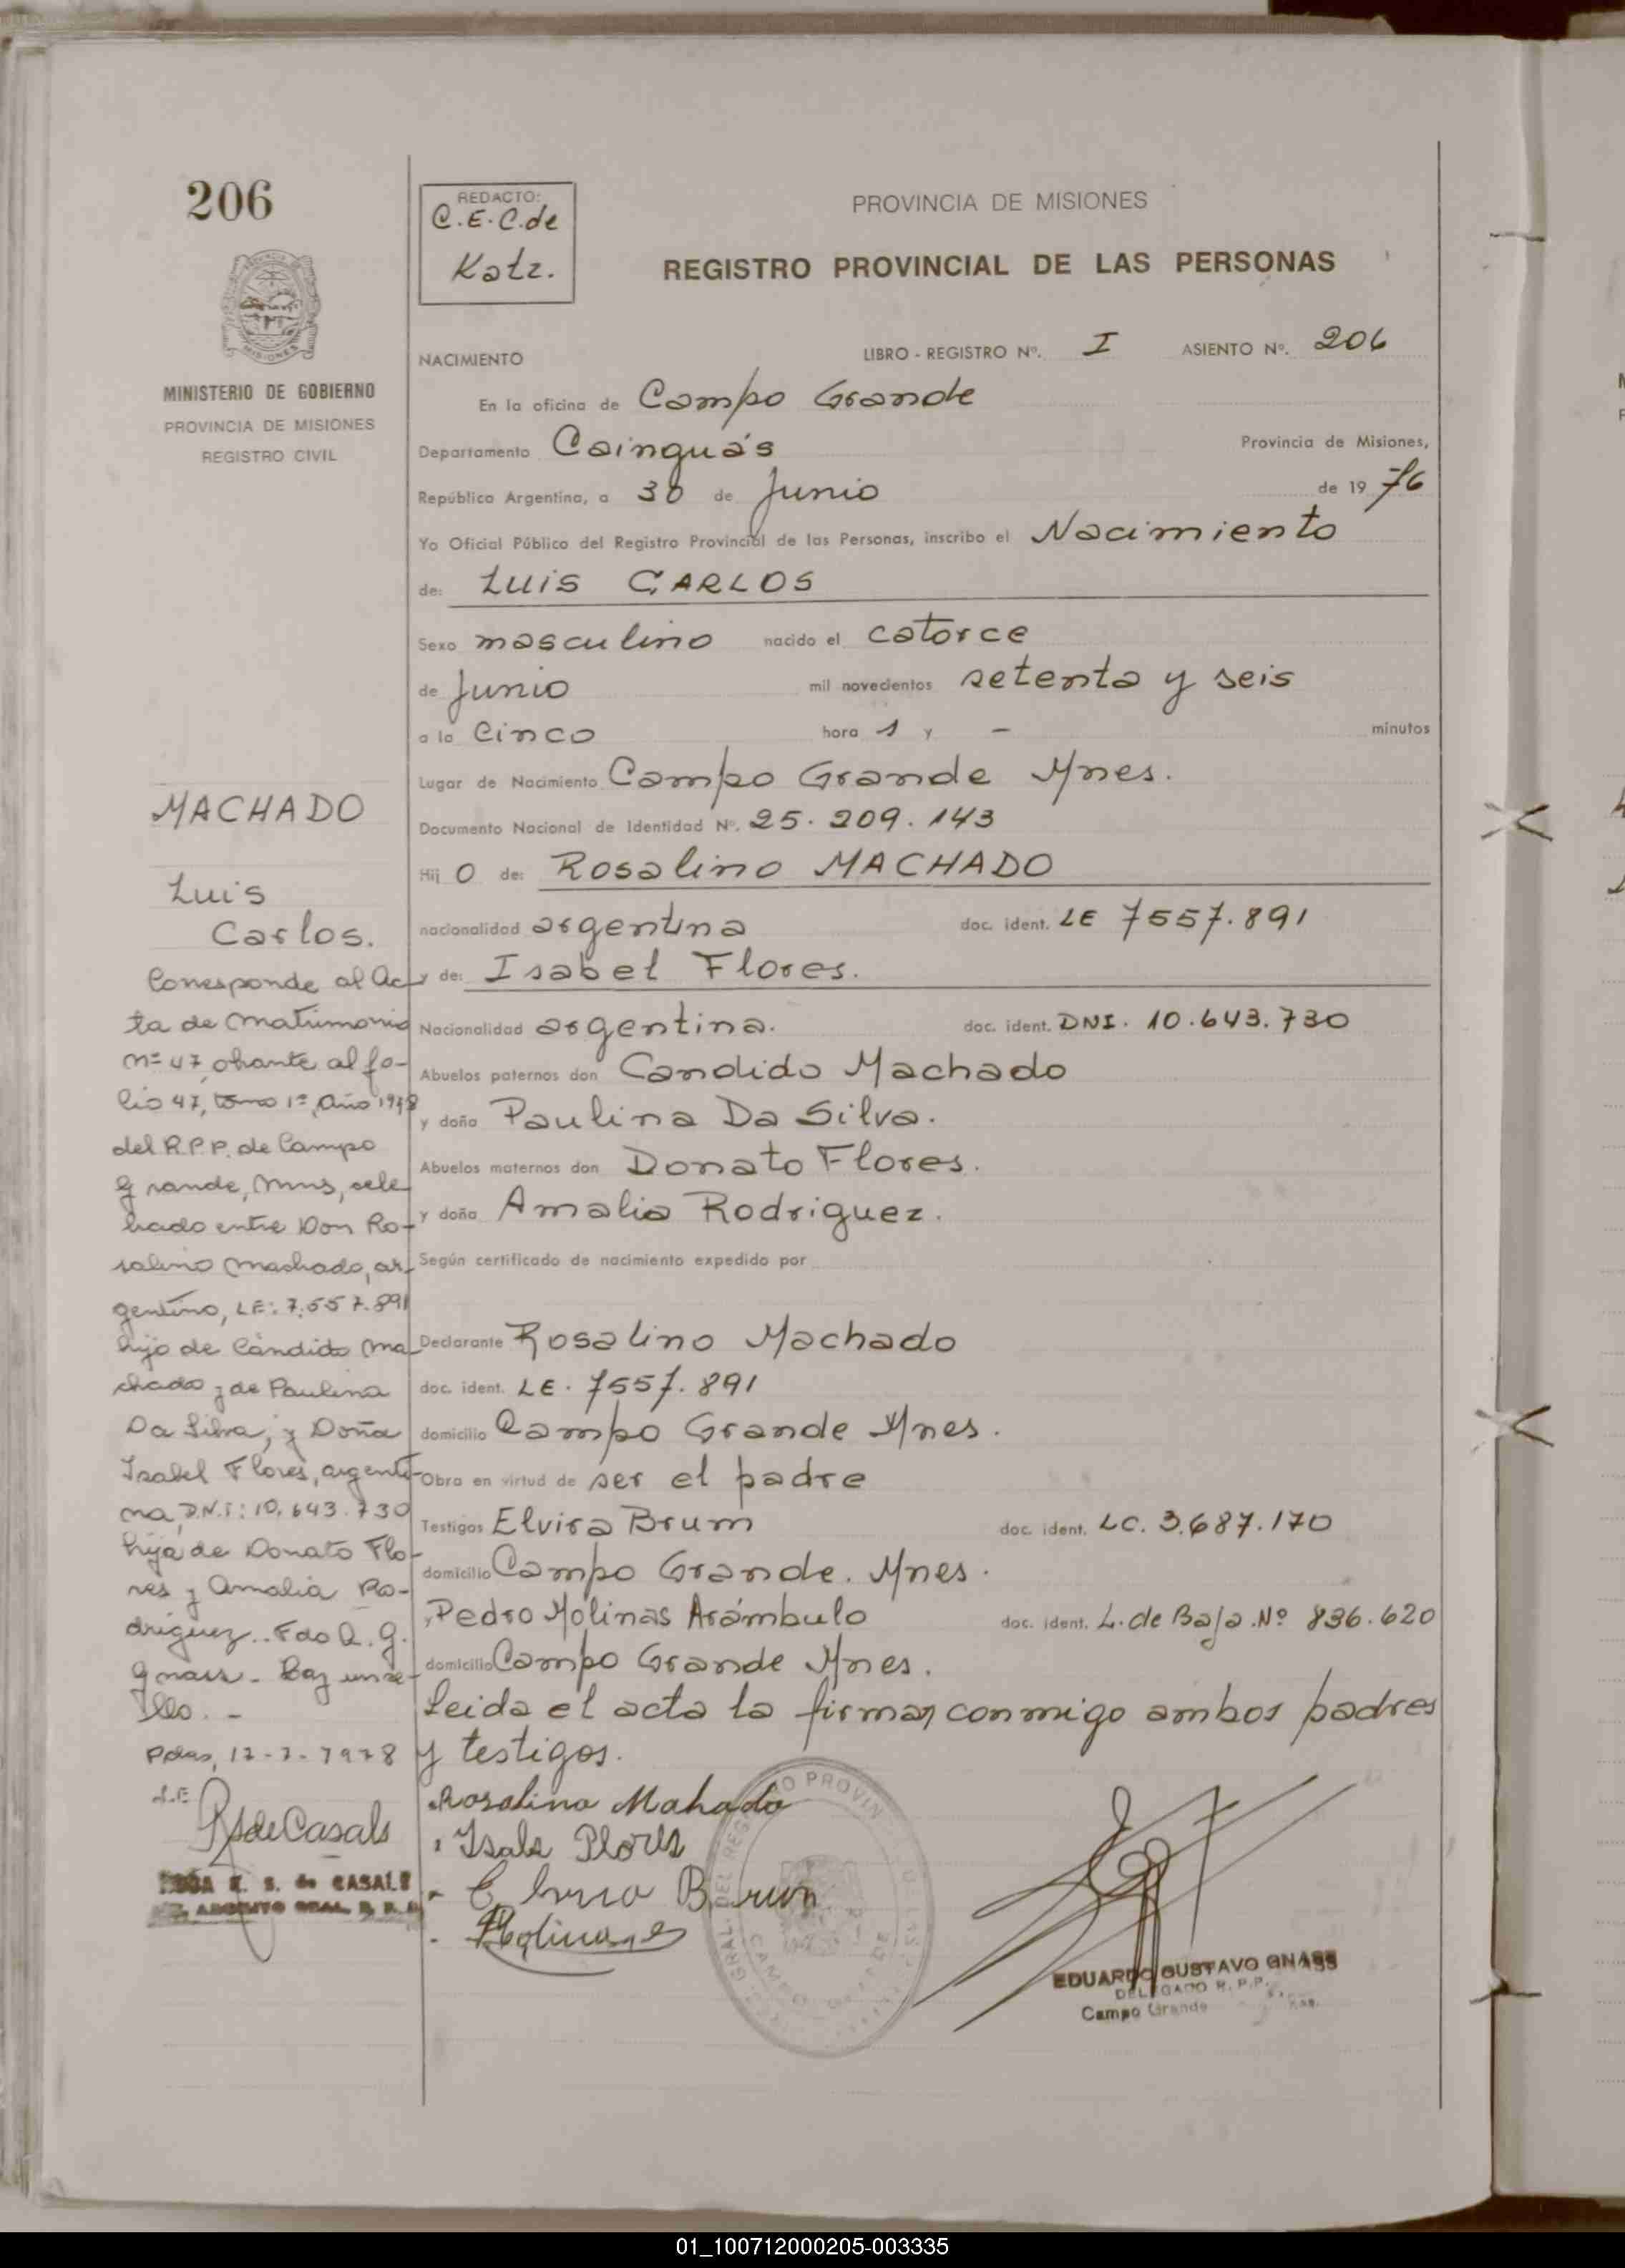 206
REDACTO:
C.E.C. de
Katz.
PROVINCIA DE MISIONES
REGISTRO PROVINCIAL DE LAS PERSONAS
MINISTERIO DE GOBIERNO
PROVINCIA DE MISIONES
REGISTRO CIVIL
NACIMIENTO LIBRO - REGISTRO Nº. I ASIENTO Nº. 206
En la oficina de Campo Grande
Departamento Cainguás Provincia de Misiones,
República Argentina, a 30 de Junio de 19 76
Yo Oficial Público del Registro Provincial de las Personas, inscribo el Nacimiento
de: LUIS CARLOS
Sexo masculino nacido el catorce
de Junio mil novecientos setenta y seis
a la cinco hora 1 y - minutos
Lugar de Nacimiento Campo Grande Mnes.
Documento Nacional de Identidad Nº. 25.209.143
Hij o de: Rosalino MACHADO
nacionalidad argentina doc. ident. LE 7557.891
y de: Isabel Flores.
Nacionalidad argentina. doc. ident. DNI. 10.643.730
Abuelos paternos don Candido Machado
y doña Paulina Da Silva.
Abuelos maternos don Donato Flores.
y doña Amalia Rodriguez.
Según certificado de nacimiento expedido por
Declarante Rosalino Machado
doc. ident. LE. 7557.891
domicilio Campo Grande Mnes.
Obra en virtud de ser el padre
Testigos Elvira Brum doc. ident. LC. 3.687.170
domicilio Campo Grande. Mnes.
Pedro Molinas Arámbulo doc. ident. L. de Baja. Nº 836.620
domicilio Campo Grande Mnes.
Leida el acta la firman conmigo ambos padres
y testigos.
Rosalino Mahado
Isabe Flores
Elvira Brum
Molinas
MACHADO
Luis
Carlos.
Corresponde al Ac-
ta de Matrimonio
Nº 47, obrante al fo-
lio 47, tomo 1º, Año 1978
del R.P.P. de Campo
Grande, Mns, cele-
brado entre Don Ro-
salino Machado, ar-
gentino, LE: 7.557.891
hijo de Cándido Ma-
chado y de Paulina
Da Silva; y Doña
Isabel Flores, argenti-
na, D.N.I: 10.643.730
hija de Donato Flo-
res y Amalia Ro-
driguez.. Fdo
Gnass - Hay un se-
llo. -
Pdas, 17-7-1978
de Casals
E. S. de CASALS
EDUARDO GUSTAVO GNASS
DELEGADO R.P.P.
Campo Grande
01_100712000205-003335